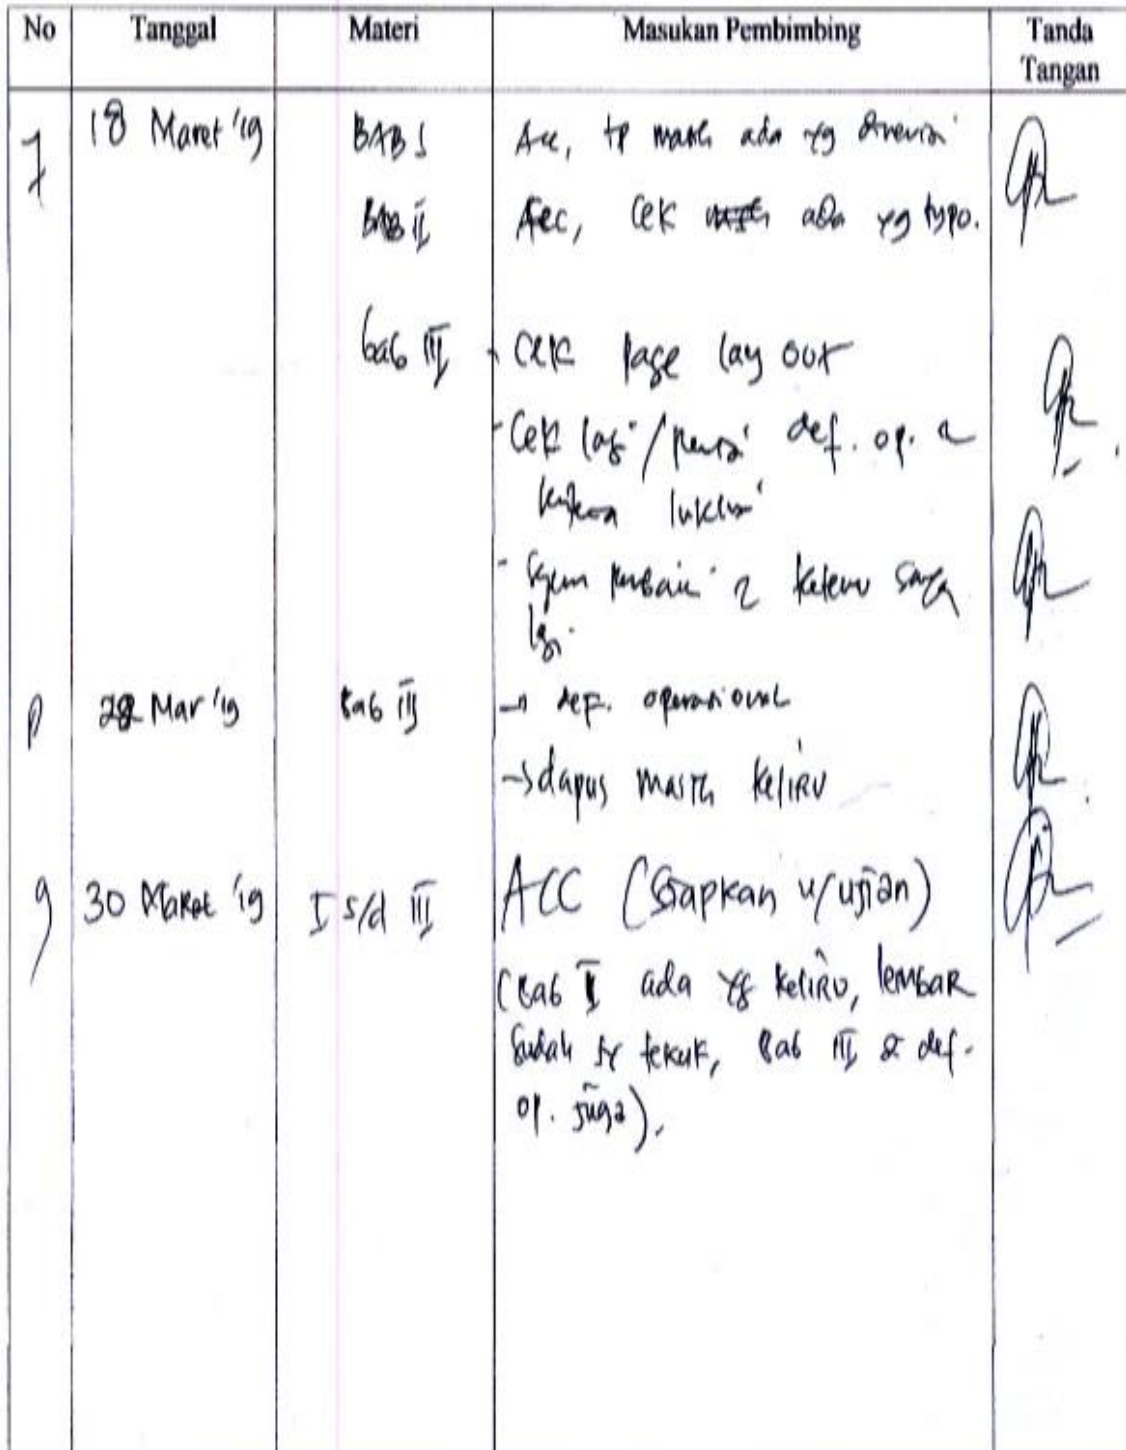 No Tanggal Materi Masukan Pembimbing Tanda Tangan
7 18 Maret '19 BAB I Acc, tp masih ada yg direvisi
BAB II Acc, cek ada yg typo.
bab III - Cek page lay out
- Cek lagi / revisi def. op. &
inklusi
- perbaiki & ketemu saya
lgi.
8 28 Mar '19 Bab III → def. operasional
→ dapus masih keliru
9 30 Maret '19 I s/d III ACC (siapkan u/ ujian)
(Bab I ada yg keliru, lembar
sudah sy tekuk, Bab III & def.
op. juga).